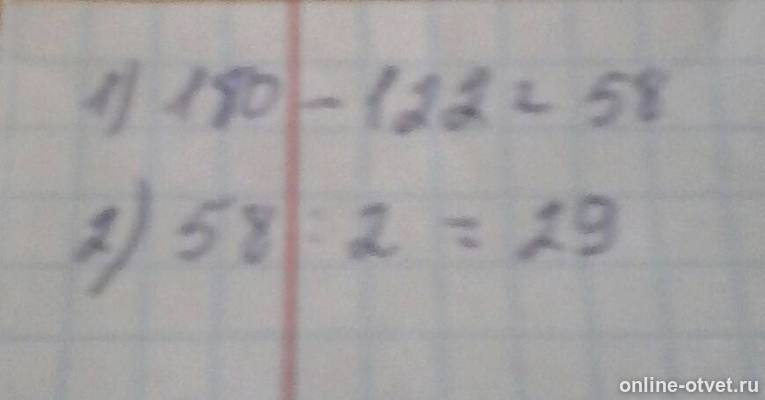 1) 180 - 122 = 58
2) 58 : 2 = 29
online-otvet.ru